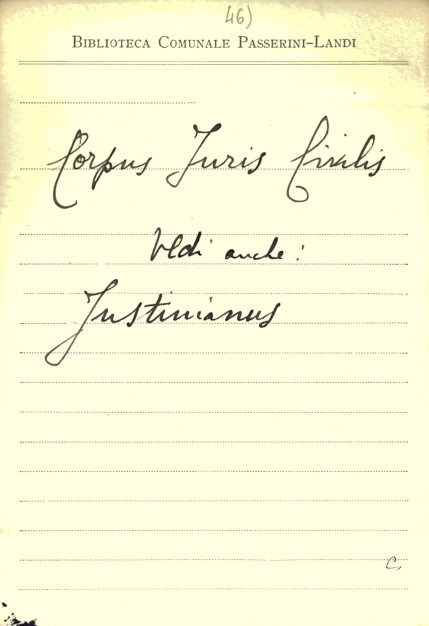 46)
BIBLIOTECA COMUNALE PASSERINI-LANDI
Corpus Juris Civilis
Vedi anche:
Justinianus
C,